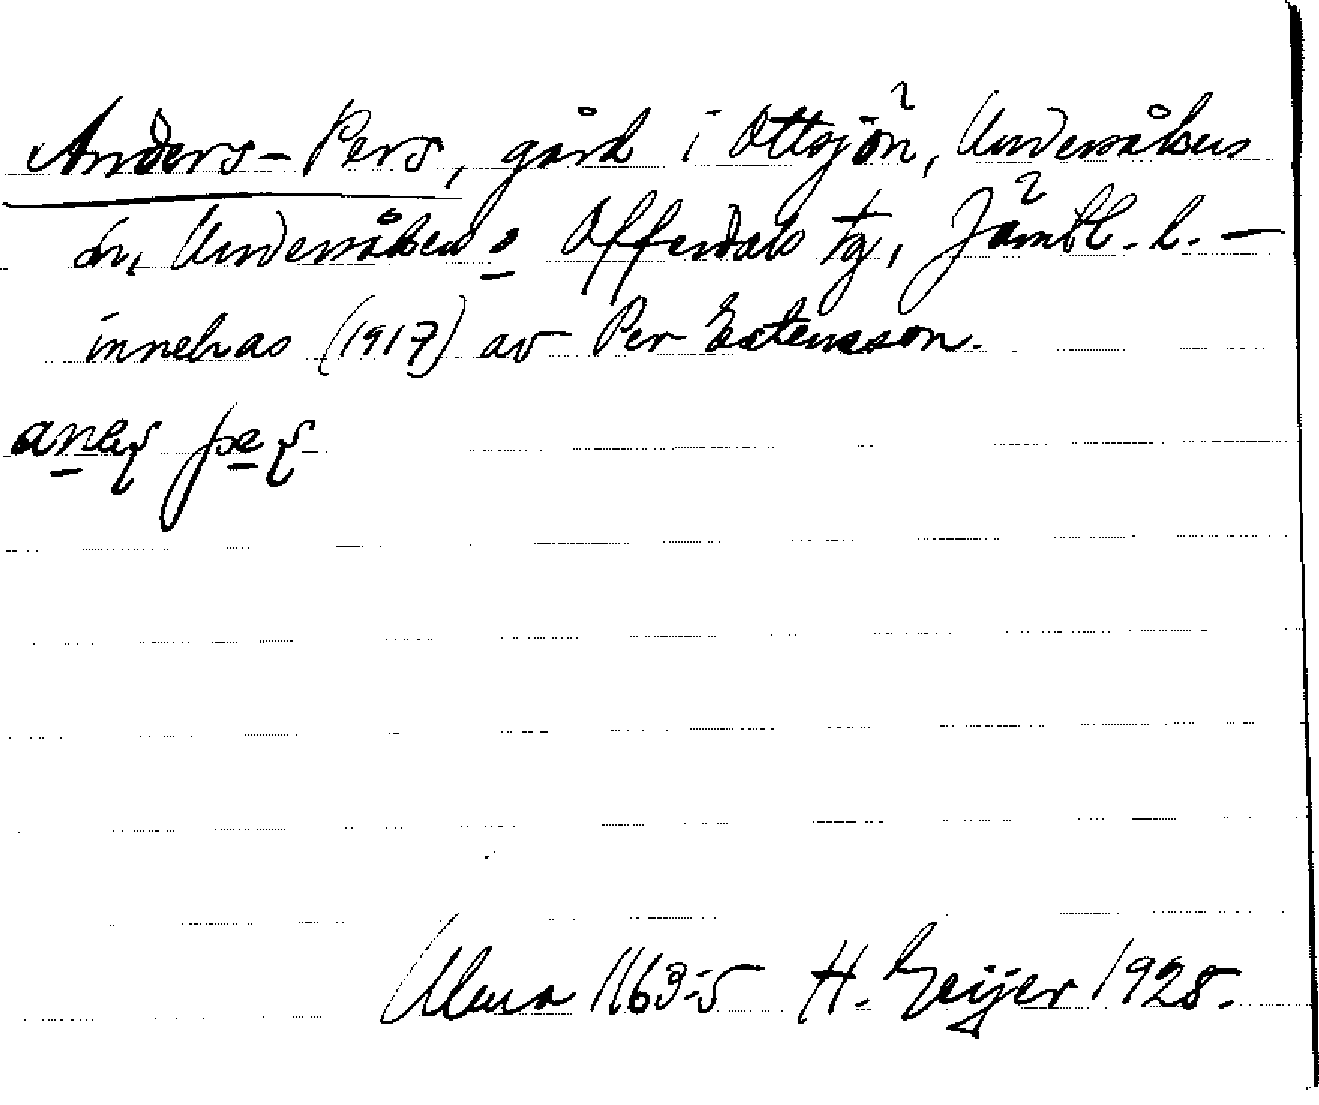 Anders-Pers, gård i Ottsjön, Undersåkers
sn, Undersåkers o Offerdals tg, Jämtl. l. –
innehas (1917) av Per Extensson.
H. Geijer 1928.